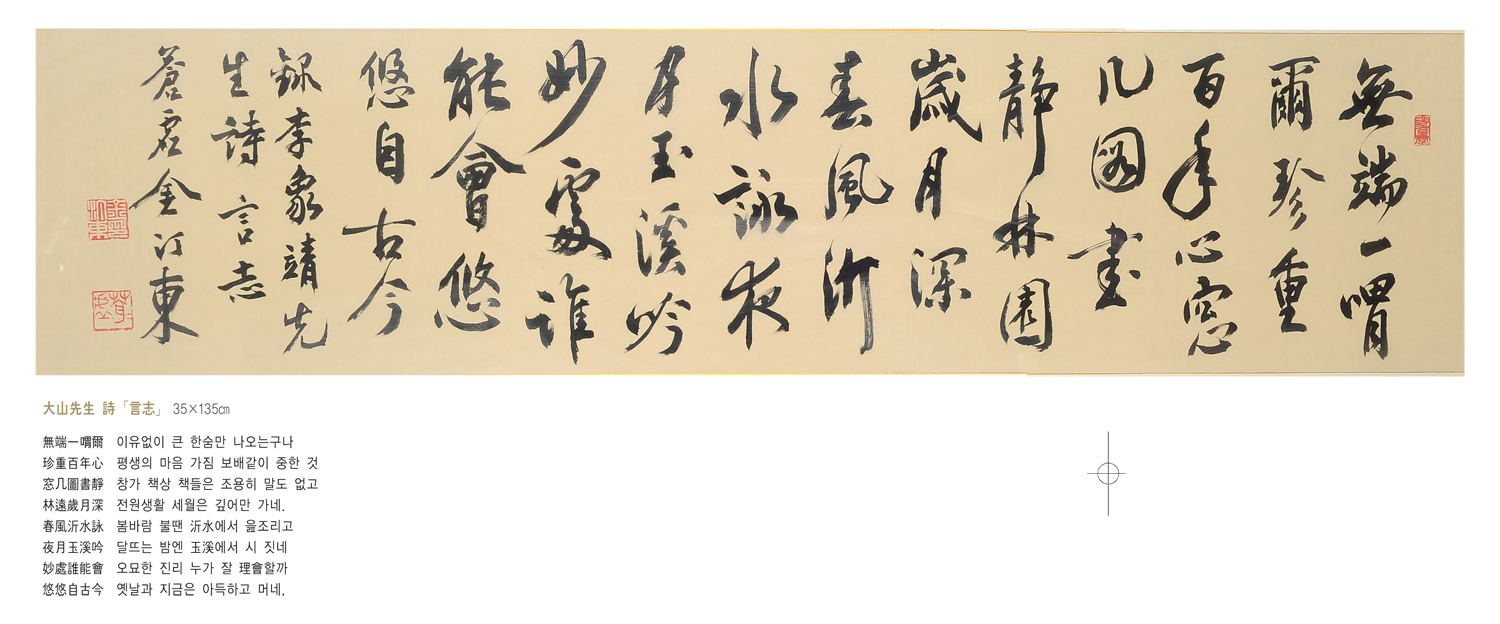 無端一喟
爾珍重
百年心窓
几圖書
靜林園
歲月深
春風沂
水詠夜
月玉溪吟
妙處誰
能會悠
悠自古今
錄李象靖先
生詩 言志
蒼 金汀東
大山先生 詩「言志」 35×135㎝
無端一喟爾 이유없이 큰 한숨만 나오는구나
珍重百年心 평생의 마음 가짐 보배같이 중한 것
窓几圖書靜 창가 책상 책들은 조용히 말도 없고
林遠歲月深 전원생활 세월은 깊어만 가네.
春風沂水詠 봄바람 불땐 沂水에서 읊조리고
夜月玉溪吟 달뜨는 밤엔 玉溪에서 시 짓네
妙處誰能會 오묘한 진리 누가 잘 理會할까
悠悠自古今 옛날과 지금은 아득하고 머네.